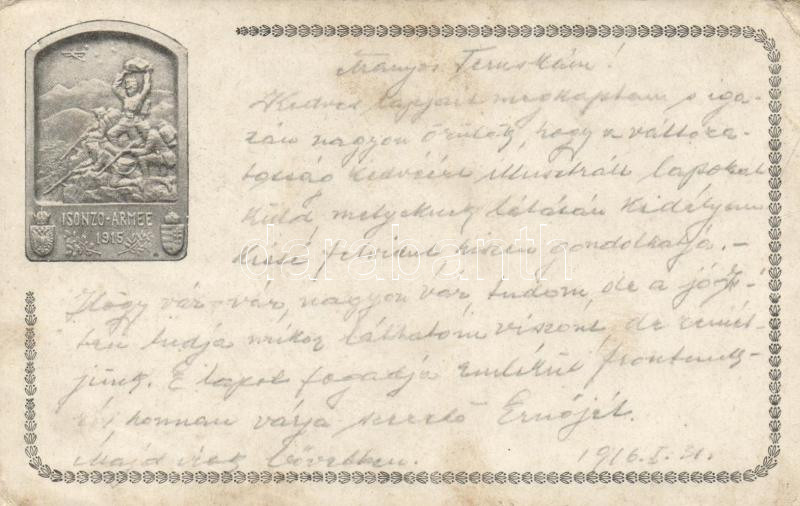 ISONZO-ARMEE
1915
Aranyos Teruskám!
Kedves lapjait megkaptam s iga-
zán nagyon örülök, hogy a változa-
tosság kedvéért illusztrált lapokat
küld, melyeknek látásán kedélyem
kissé felvidul hiszen gondolhatja. -
Hogy vár-vár, nagyon vár, tudom, de a jó Is-
ten tudja mikor láthatom viszont, de remél-
jünk. E lapot fogadja emlékül frontunk-
honnan várja szerető Ernőjét.
Majd írok bővebben. 1916. I. 31.
darabanth